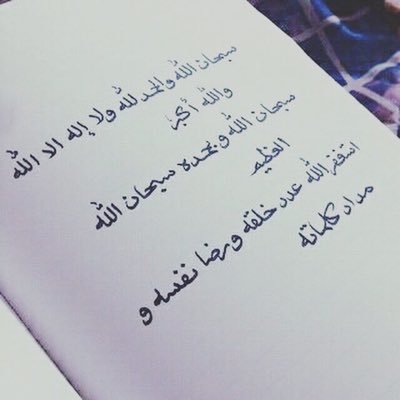 سبحان الله والحمد لله ولا إله الا الله
والله أكبر
سبحان الله وبحمده سبحان الله
العظيم
استغفر الله عدد خلقه ورضا نفسه و
مداد كلماته